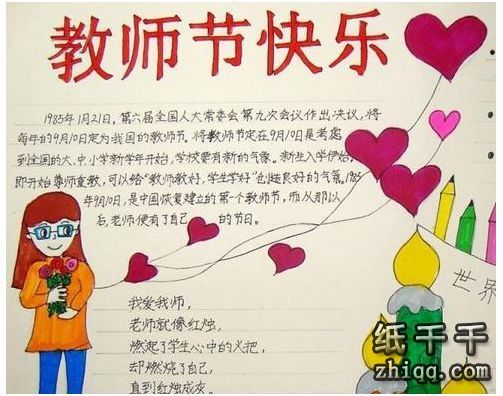 教师节快乐
1985年1月21日,第六届全国人大常委会第九次会议作出决议,将
每年的9月10日定为我国的教师节。将教师节定在9月10日是考虑
到全国的大、中、小学新学年开始,学校要有新的气象。新生入学伊始,
即开始尊师重教,可以给"教师教好,学生学好"创造良好的气氛。1985
年9月10日,是中国恢复建立的第一个教师节,而从那以
后,老师便有了自己的节日。
我爱我师,
老师就像红烛,
燃起了学生心中的火把,
却燃烧了自己,
直到红烛成灰。
世界
纸千千
zhiqq.com